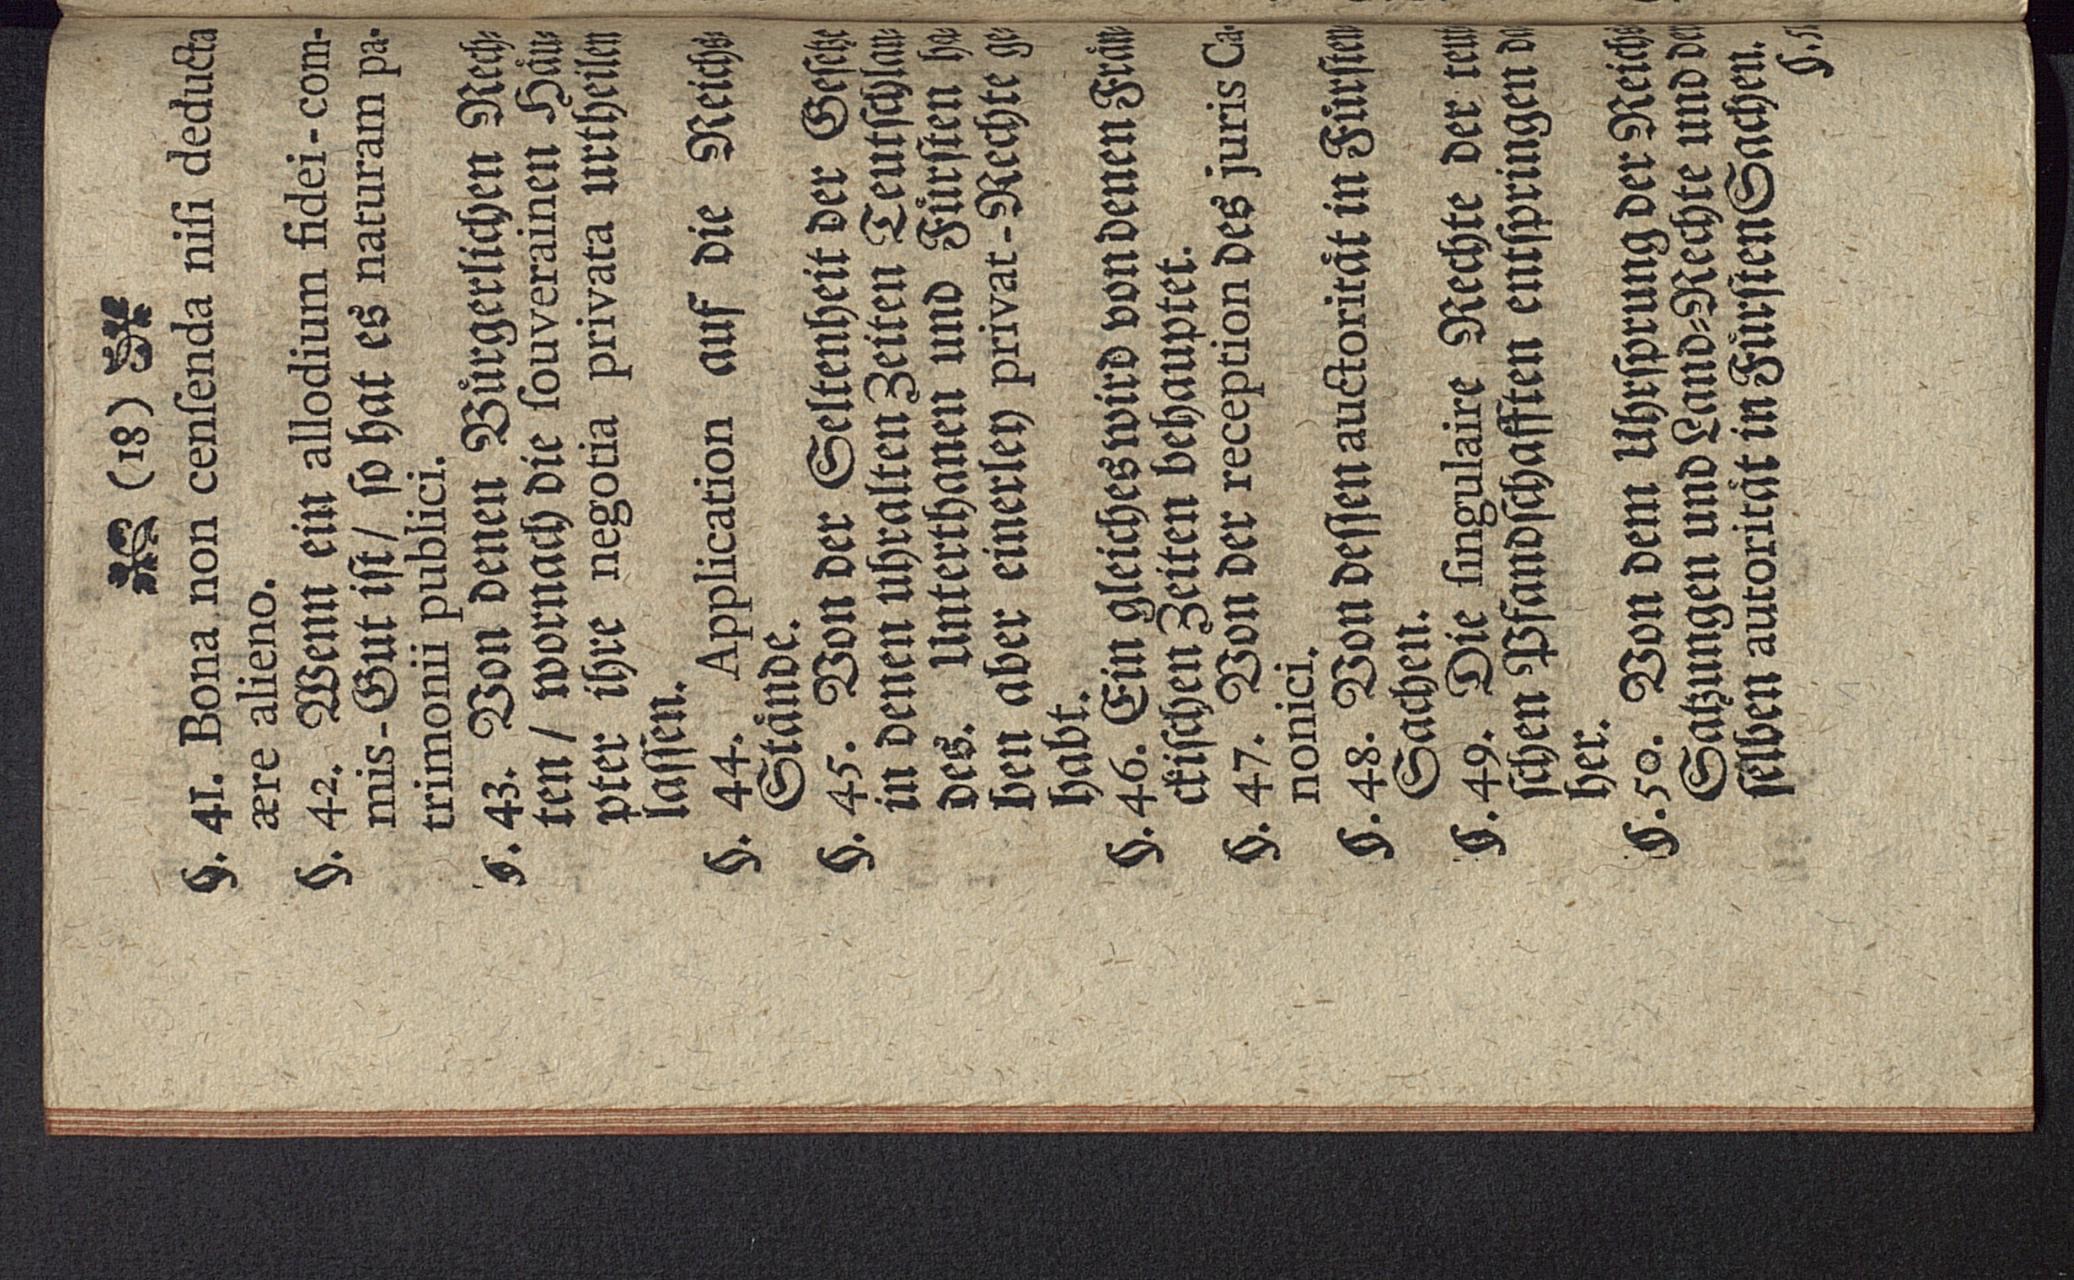 (18)
§. 41. Bona non cenſenda niſi deducta
ære alieno.
§. 42. Wenn ein allodium fidei-com-
mis-Gut iſt/ ſo hat es naturam pa-
trimonii publici.
§. 43. Von denen Buͤrgerlichen Rech-
ten/ wornach die ſouverainen Haͤu-
pter ihre negotia privata urtheilen
laſſen.
§. 44. Application auf die Reichs-
Staͤnde.
§. 45. Von der Seltenheit der Geſetze
in denen uhralten Zeiten Teutſchlan-
des. Unterthanen und Fuͤrſten ha-
ben aber einerley privat-Rechte ge-
habt.
§. 46. Ein gleiches wird von denen Fraͤn-
ckiſchen Zeiten behauptet.
§. 47. Von der reception des juris Ca-
nonici.
§. 48. Von deſſen auctoritaͤt in Fuͤrſten
Sachen.
§. 49. Die ſingulaire Rechte der teut
ſchen Pfandſchafften entſpringen da
her.
§. 50. Von dem Uhrſprung der Reichs
Satzungen und Land-Rechte und der
ſelben autoritaͤt in Fuͤrſten Sachen.
§. 51